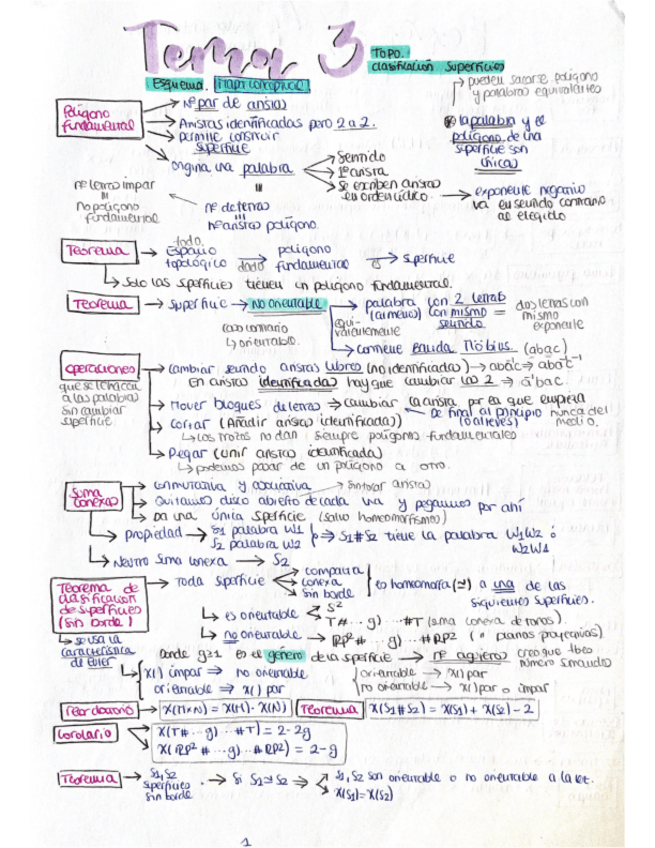 Tema 3
TOPO.
clasificación superficies
Esquema. Mapa conceptual
→ pueden sacarse polígono
y palabras equivalentes
Polígono
fundamental
→ Nº par de aristas
→ Aristas identificadas pero 2 a 2.
→ permite construir
superficie
→ origina una palabra
→ Sentido
→ 1ª arista
→ se escriben aristas
en orden cíclico.
→ exponente negativo
va en sentido contrario
al elegido
la palabra y el
polígono de una
superficie son
únicas
nº letras impar
no polígono
fundamental
nº de letras
nº aristas polígono.
Teorema
todo.
→ Espacio
topológico
dado
polígono
fundamental
→ superficie
↳ Solo las superficies tienen un polígono fundamental.
Teorema → superficie → no orientable → palabra con 2 letras
(al menos) con mismo =
sentido
dos letras con
mismo
exponente
caso contrario
↳ orientable.
equi-
valentemente
→ contiene Banda Möbius. (abac)
operaciones
que se le hacen
a las palabras
sin cambiar
superficie
→ cambiar sentido aristas libres (no identificadas)
En aristas identificadas hay que cambiar las 2 → a⁻¹ba⁻¹c.
→ Mover bloques de letras ⇒ cambiar la arista por la que empieza
De final al principio nunca del
(o al revés) medio.
→ Cortar (Añadir arista identificada)
↳ los trozos no dan siempre polígonos fundamentales
→ Pegar (unir arista identificada)
↳ podemos pasar de un polígono a otro.
Suma
conexa
→ conmutativa y asociativa
→ Quitamos disco abierto de cada una y pegamos por ahí
→ Da una única superficie (salvo homeomorfismos)
→ propiedad → S1 palabra W1
S2 palabra W2
⇒ S1#S2 tiene la palabra W1W2 ó
W2W1
→ Neutro suma conexa → S2
Teorema de
clasificación
de superficies
(sin borde)
→ Toda superficie
compacta
conexa
sin borde
es homeomorfa (≃) a una de las
siguientes superficies.
↳ es orientable
S²
T# ...g) ...#T (suma conexa de toros).
↳ no orientable → RP²# ...g) ...#RP2 (" planos proyectivos)
↳ se usa la
característica
de Euler
donde g≥1 es el género de la superficie → nº agujeros
creo que tbes
número sumandos
X( ) impar ⇒ no orientable
orientable ⇒ X( ) par
orientable → X( ) par
no orientable → X( ) par o impar
X(M×N) = X(M)·X(N)
Teorema
X(S1#S2) = X(S1) + X(S2) - 2
Corolario
X(T# ...g) ...#T) = 2-2g
X(RP2# ...g) ...#RP2) = 2-g
Teorema
→ S1,S2
superficies
sin borde
→ Si S1≃S2 ⇒
→ S1,S2 son orientable o no orientable a la vez.
→ X(S1)=X(S2)
1